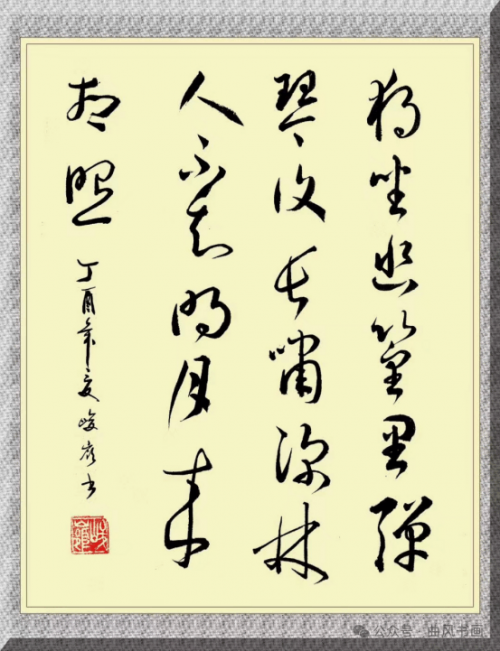 独坐幽篁里弹
琴復长嘯深林
人不知明月来
相照
丁酉年夏峻书
公众号·曲风书画